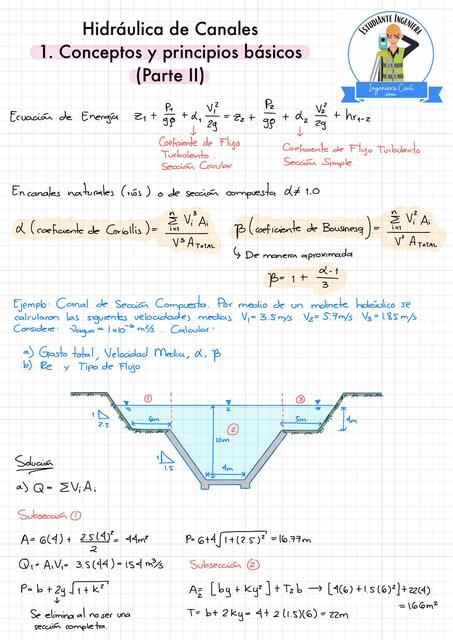 Hidráulica de Canales
1. Conceptos y principios básicos
(Parte II)
ESTUDIANTE INGENIERA
Ingeniería Civil
Ecuación de Energía z₁ + P₁/gρ + α₁ V₁²/2g = z₂ + P₂/gρ + α₂ V₂²/2g + hr₁₋₂
Coeficiente de Flujo Turbulento. Sección Circular
Coeficiente de Flujo Turbulento Sección Simple.
En canales naturales (ríos) o de sección compuesta α ≠ 1.0
α (coeficiente de Coriollis) = Σⁿᵢ₌₁ Vᵢ³ Aᵢ / V³ A TOTAL
β (coeficiente de Bousinesq) = Σⁿᵢ₌₁ Vᵢ² Aᵢ / V² A TOTAL
↳ De manera aproximada
β = 1 + α-1/3
Ejemplo: Canal de Sección Compuesta. Por medio de un molinete hidráulico se
calcularon las siguientes velocidades medias V₁= 3.5 m/s V₂= 5.7 m/s V₃= 1.85 m/s
Considere: νagua = 1x10⁻⁶ m²/s. Calcular:
a) Gasto total, Velocidad Media, α, β
b) Re y Tipo de Flujo
① ③
1 2.5 6m 10m ② 5m 4m
1 1.5 4m
Solución
a) Q = ΣVᵢAᵢ
Subsección ①
A = 6(4) + 2.5(4)²/2 = 44m²
P = 6+4√1+(2.5)² = 16.77m
Q₁ = A₁V₁ = 3.5(44) = 154 m³/s
Subsección ②
P = b + 2y√1+k²
A₂ = [by + Ky²] + T₂b → [4(6)+1.5(6)²] + 22(4)
= 166m²
Se elimina al no ser una
sección completa.
T = b + 2ky = 4 + 2(1.5)(6) = 22m